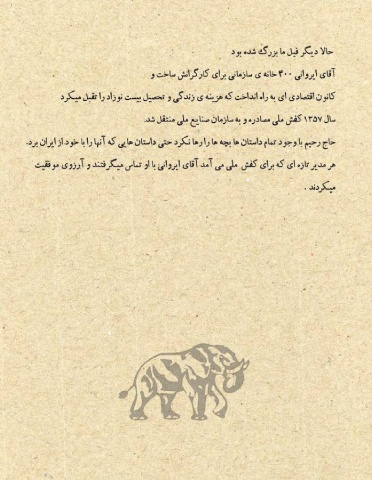 حالا دیگر فیل ما بزرگ شده بود
آقای ایروانی ۴۰۰ خانه ی سازمانی برای کارگرانش ساخت و
کانون اقتصادی ای به راه انداخت که هزینه ی زندگی و تحصیل بیست نوزاد را تقبل میکرد
سال ۱۳۵۷ کفش ملی مصادره و به سازمان صنایع ملی منتقل شد.
حاج رحیم با وجود تمام داستان ها بچه ها را رها نکرد حتی داستان هایی که آنها را با خود از ایران برد.
هر مدیر تازه ای که برای کفش ملی می آمد آقای ایروانی با او تماس میگرفتند و آرزوی موفقیت
میکردند .